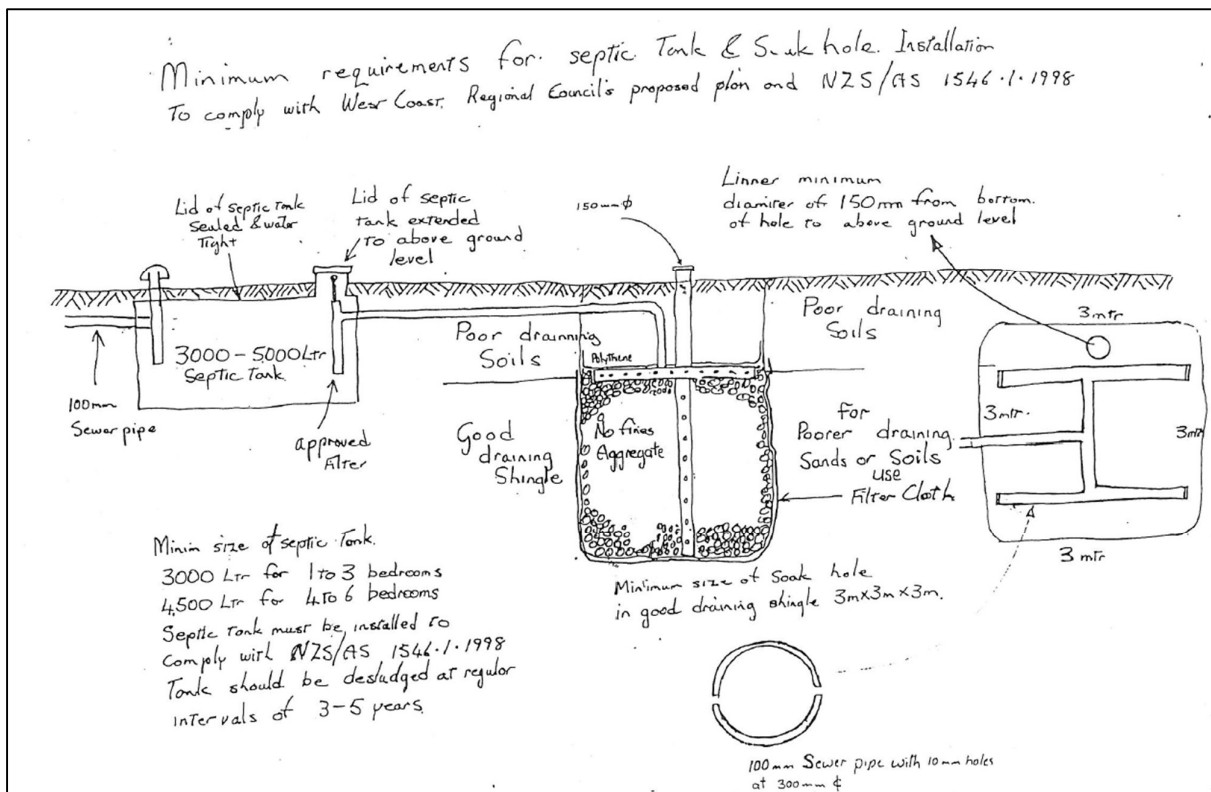 Minimum requirements for septic Tank & Soak hole. Installation
To comply with West Coast. Regional Council's proposed plan and NZS/AS 1546.1.1998
Lid of septic tank
sealed & water
Tight
Lid of septic
tank extended
to above ground
level
150mm ϕ
Linner minimum
diamiter of 150mm from bottom.
of hole to above ground
level
3000 - 5000 Ltr
Septic Tank.
100mm
Sewer pipe
approved
Filter
Poor drainning
Soils
Polythene
Poor draining
Soils
Good
draining
Shingle
No fines
Aggregate
for
Poorer draining
Sands or Soils
use
Filter Cloth.
3 mtr
3 mtr.
3 mtr
3 mtr
Minim size of septic Tank.
3000 Ltr for 1 to 3 bedrooms
4,500 Ltr for 4 to 6 bedrooms
Septic tank must be installed to
comply with NZS/AS 1546.1.1998
Tank should be desludged at regular
intervals of 3-5 years.
Minimum size of Soak hole
in good draining shingle 3m×3m×3m.
100mm Sewer pipe with 10mm holes
at 300mm ¢